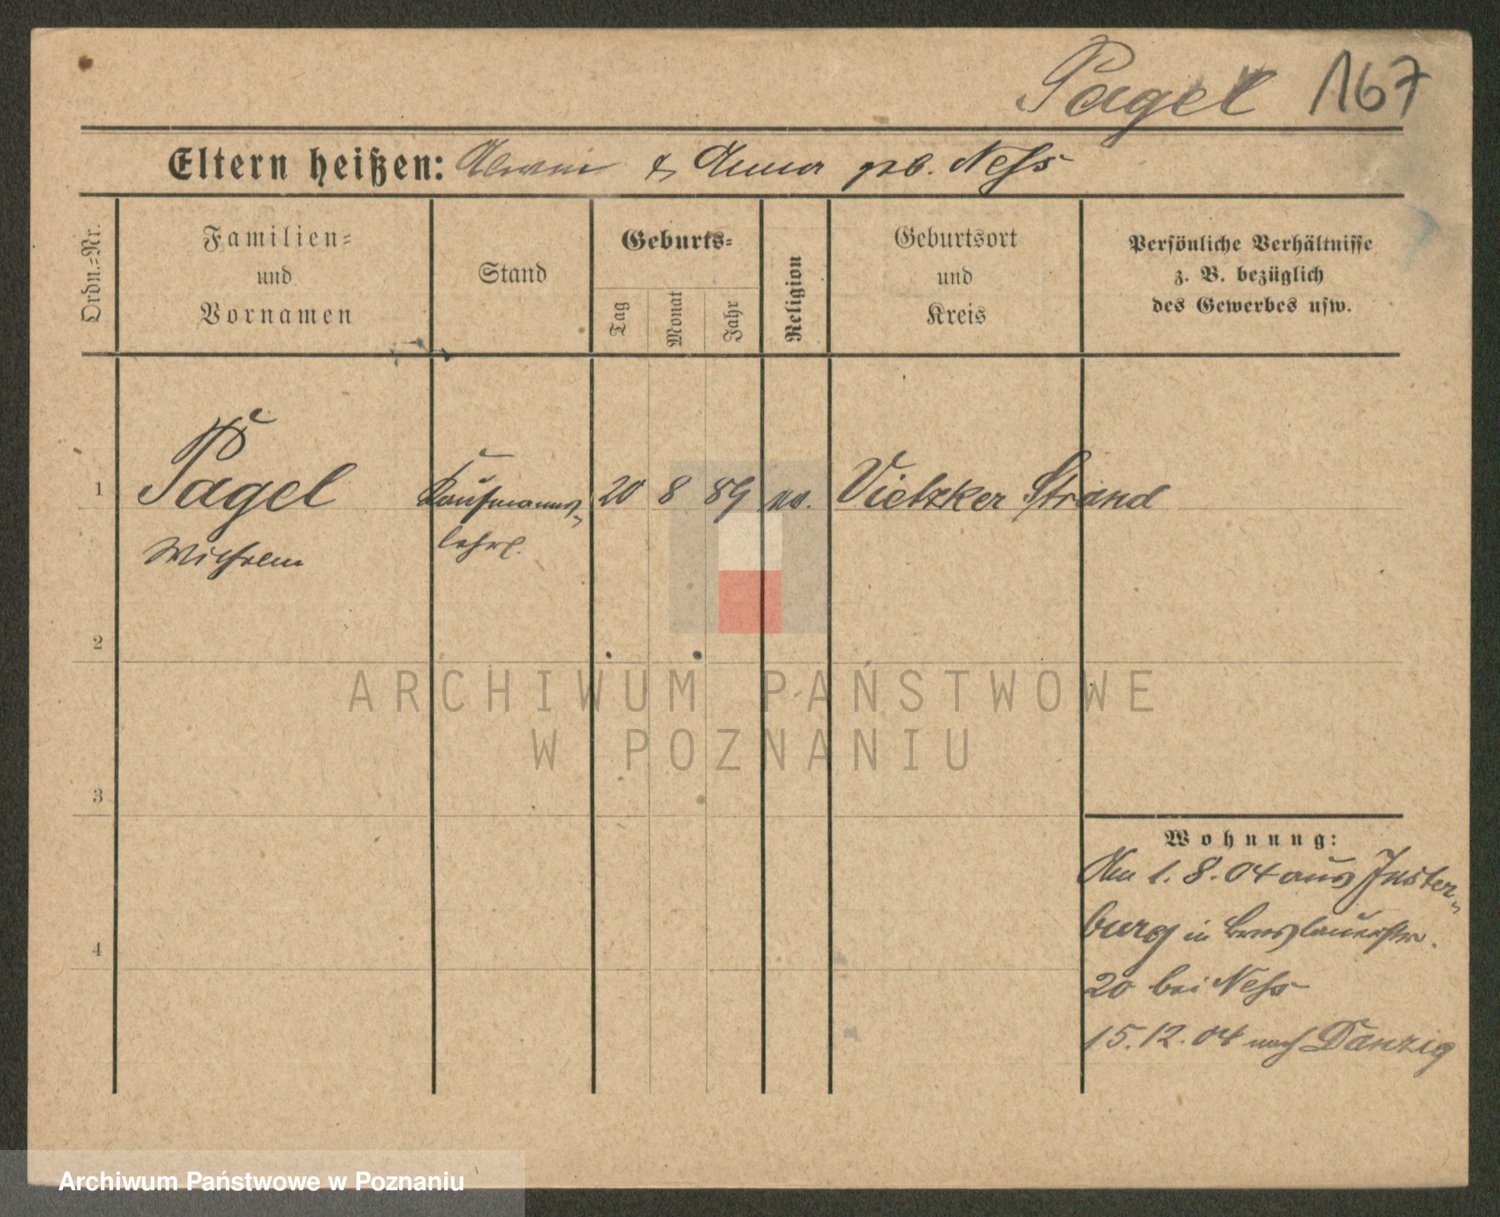 Pagel 167
Eltern heißen: Alwin & Anna geb. Neß
Ordn.-Nr.
Familien-
und
Vornamen
Stand
Geburts-
Tag
Monat
Jahr
Religion
Geburtsort
und
Kreis
Persönliche Verhältnisse
z. B. bezüglich
des Gewerbes usw.
1 Pagel Kaufmanns- 20 8 89 Vietzker Strand
Wilhelm lehrl.
2
ARCHIWUM PAŃSTWOWE
W POZNANIU
3
Wohnung:
Am 1. 8. 04 aus Inster-
burg in Breslauerstr.
4
20 bei Neß
15.12.04 nach Danzig
Archiwum Państwowe w Poznaniu